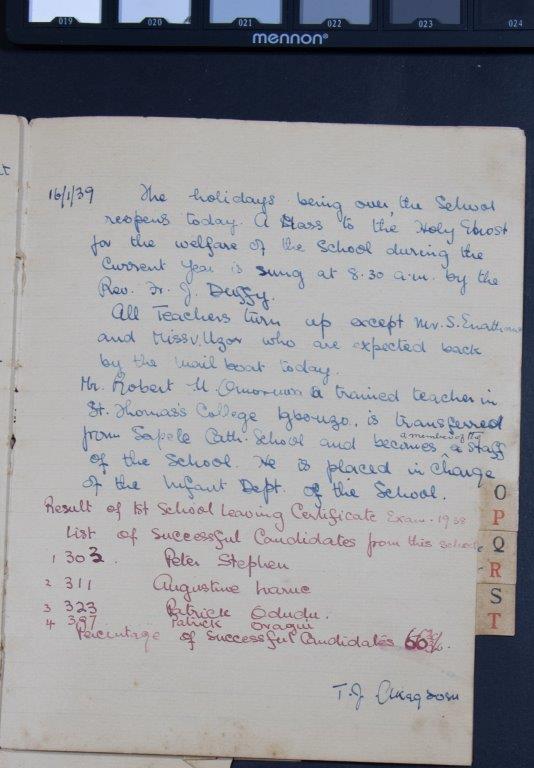 019 020 021 022 023 024
mennon®
16/1/39 The holidays being over, the School
reopens today. A Mass to the Holy Ghost
for the welfare of the School during the
Current year is sung at 8.30 a.m. by the
Rev. Fr. J. Duffy.
All Teachers turn up except Mr. S.
and Miss V. Uzor who are expected back
by the mail boat today.
Mr. Robert U. a trained teacher in
St. Thomas's College Igbouzo, is transferred
from Sapele Cath. School and becomes a member of the staff
of the School. He is placed in Charge
of the Infant Dept. of the School.
Result of 1st School Leaving Certificate Exam. 1938
List of Successful Candidates from this School
1 303. Peter Stephen
2 311 Augustine
3 323 Patrick Odudu.
4 397 Patrick
Percentage of Successful Candidates 66 %.
T. J.
O
P
Q
R
S
T